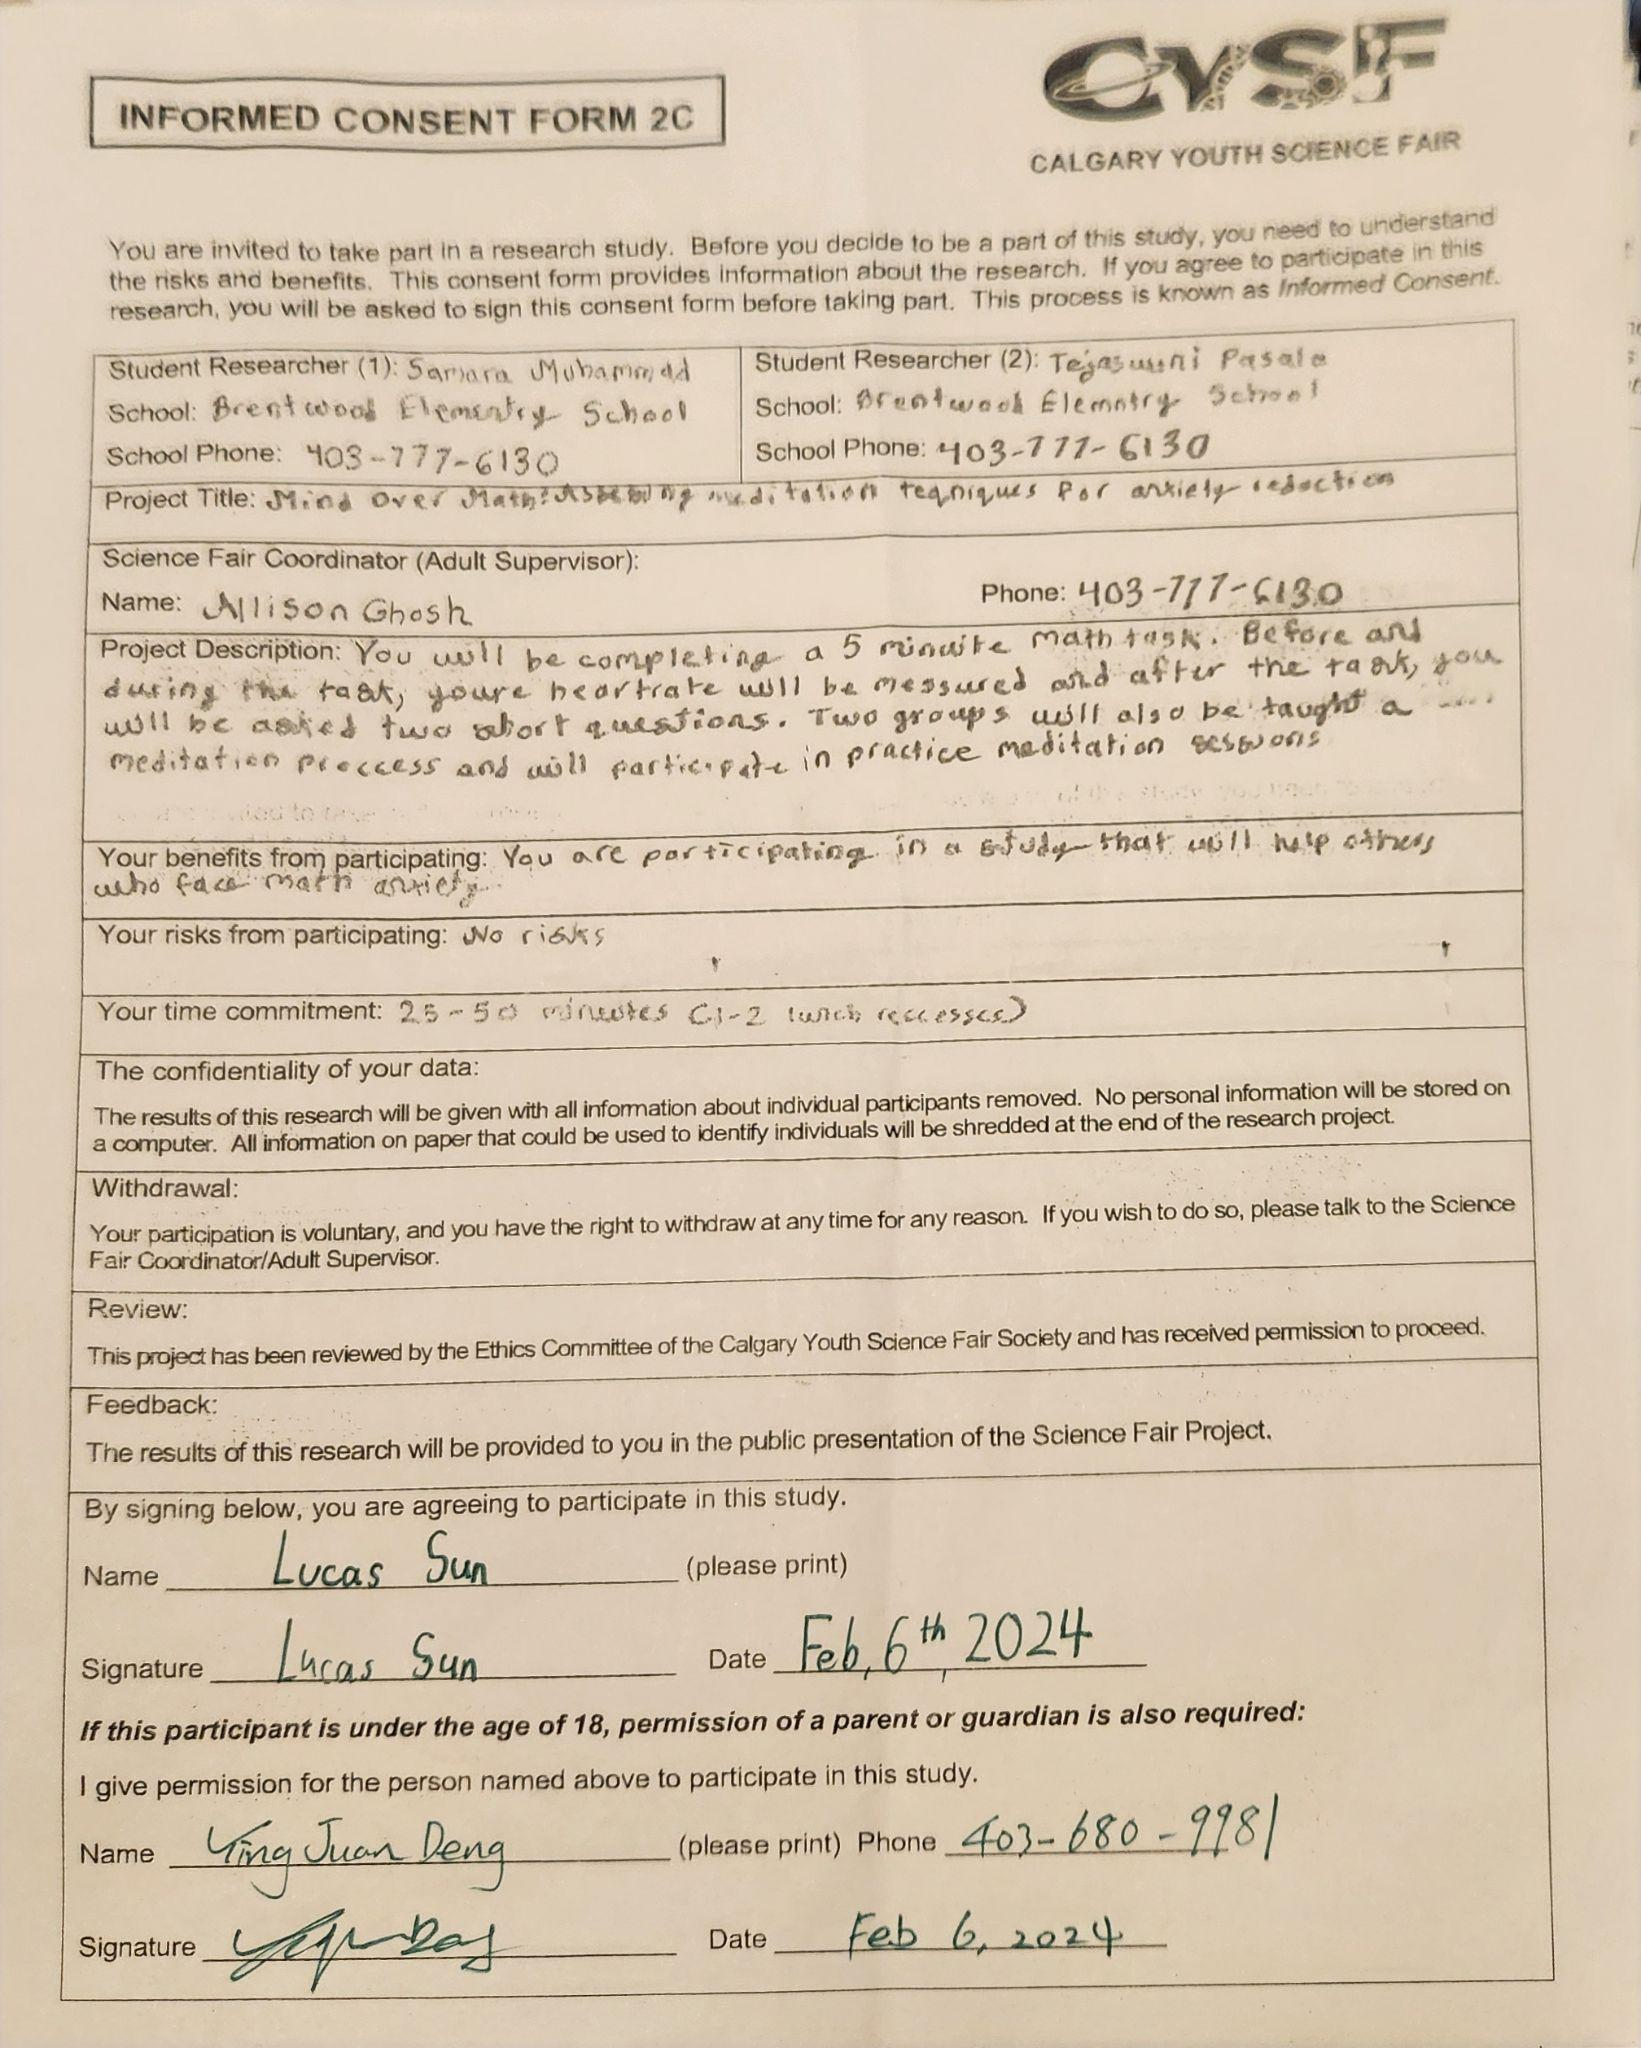 CYSF
INFORMED CONSENT FORM 2C
CALGARY YOUTH SCIENCE FAIR
You are invited to take part in a research study. Before you decide to be a part of this study, you need to understand
the risks and benefits. This consent form provides information about the research. If you agree to participate in this
research, you will be asked to sign this consent form before taking part. This process is known as Informed Consent.
Student Researcher (1): Samara Muhammad
School: Brentwood Elementry School
School Phone: 403-777-6130
Student Researcher (2): Tejaswini Pasala
School: Brentwood Elemntry School
School Phone: 403-777-6130
Project Title: Mind Over Math: meditation teqniques For anxiety reduction
Science Fair Coordinator (Adult Supervisor):
Name: Allison Ghosh Phone: 403-777-6130
Project Description: You will be completing a 5 minuite math task. Before and
during the task, youre heartrate will be messured and after the task, you
will be asked two short questions. Two groups will also be taught a
meditation proccess and will participate in practice meditation sessions
Your benefits from participating: You are participating in a study that will help others
who face math anxiety.
Your risks from participating: No risks
Your time commitment: 25-50 (1-2 lunch reccesses)
The confidentiality of your data:
The results of this research will be given with all information about individual participants removed. No personal information will be stored on
a computer. All information on paper that could be used to identify individuals will be shredded at the end of the research project.
Withdrawal:
Your participation is voluntary, and you have the right to withdraw at any time for any reason. If you wish to do so, please talk to the Science
Fair Coordinator/Adult Supervisor.
Review:
This project has been reviewed by the Ethics Committee of the Calgary Youth Science Fair Society and has received permission to proceed.
Feedback:
The results of this research will be provided to you in the public presentation of the Science Fair Project.
By signing below, you are agreeing to participate in this study.
Name Lucas Sun (please print)
Signature Lucas Sun Date Feb, 6th, 2024
If this participant is under the age of 18, permission of a parent or guardian is also required:
I give permission for the person named above to participate in this study.
Name Ying Juan Deng (please print) Phone 403-680-9981
Signature Date Feb 6, 2024